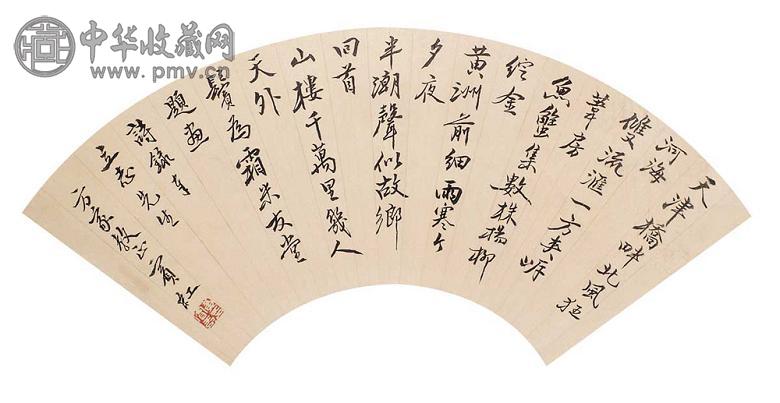 中华收藏网
www.pmv.cn
天津橋畔北風狂
河海
雙流滙一方
葦房
魚蟹集數株楊柳
綻金
黃洲前細雨寒今
夕夜
半潮聲似故鄉
回首
山樓千萬里幾人
天外
鬢為霜友堂
題畫
詩錄奉
先生
方家教正賓虹